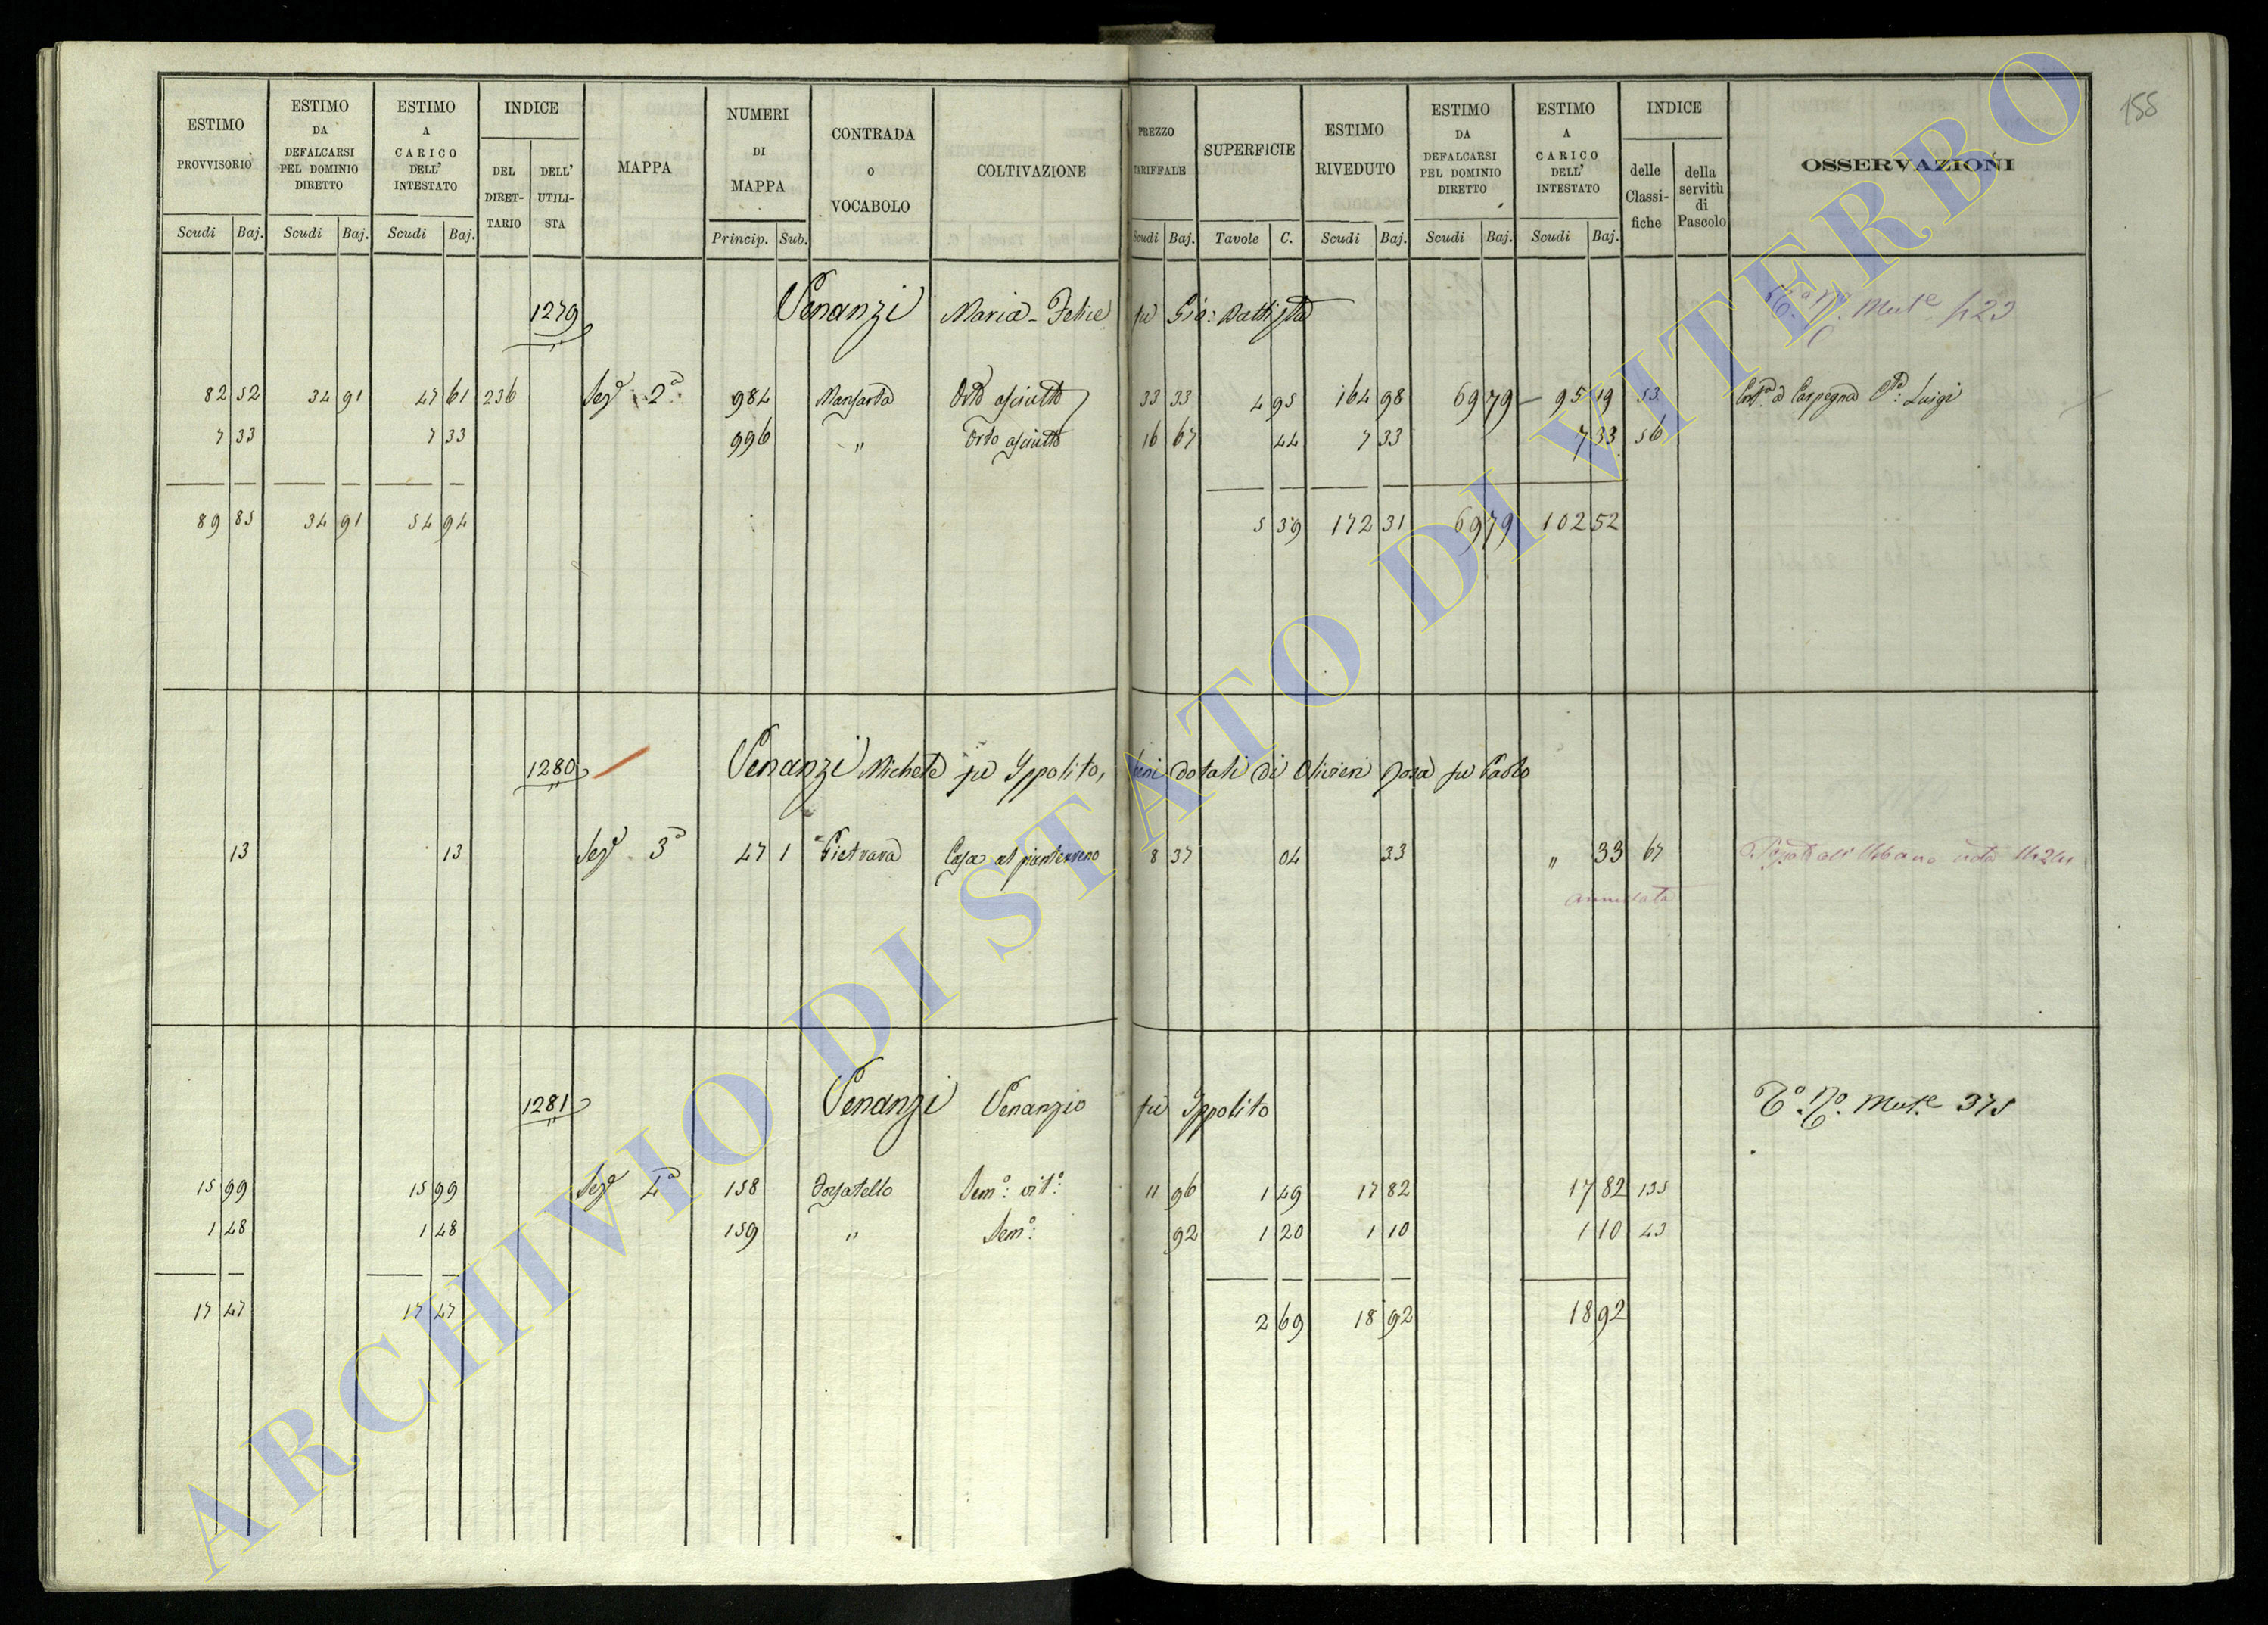 155
ESTIMO PROVVISORIO Scudi Baj. ESTIMO DA DEFALCARSI PEL DOMINIO DIRETTO Scudi Baj. ESTIMO A CARICO DELL' INTESTATO Scudi Baj. INDICE DEL DIRETTARIO DELL' UTILISTA MAPPA NUMERI DI MAPPA Princip. Sub. CONTRADA O VOCABOLO COLTIVAZIONE PREZZO TARIFFALE Scudi Baj. SUPERFICIE Tavole C. ESTIMO RIVEDUTO Scudi Baj. ESTIMO DA DEFALCARSI PEL DOMINIO DIRETTO Scudi Baj. ESTIMO A CARICO DELL' INTESTATO Scudi Baj. INDICE delle Classifiche della servitù di Pascolo OSSERVAZIONI
1279 Venanzi Maria-Felice fu Gio: Battista Mut.e 423
82 52 34 91 47 61 236 Sez.e 2a 984 Mansarda Orto asciutto 33 33 4 95 164 98 69 79 95 19 53 Carpegna Luigi
7 33 7 33 996 " Orto asciutto 16 67 44 7 33 7 33 56
89 85 34 91 54 94 5 39 172 31 69 79 102 52
1280 Venanzi Michele fu Ippolito, beni dotali di Olivieri Rosa fu Paolo
13 13 Sez.e 3a 47 1 Pietrara Casa al pianterreno 8 37 04 33 " 33 67 Urbano
annullata
1281 Venanzi Venanzio fu Ippolito To. No. Mut.e 375
15 99 15 99 Sez.e 4a 158 Fossatello Sem.o vit.o 11 96 1 49 17 82 17 82 135
1 48 1 48 159 " Sem.o 92 1 20 1 10 1 10 43
17 47 17 47 2 69 18 92 18 92
ARCHIVIO DI STATO DI VITERBO